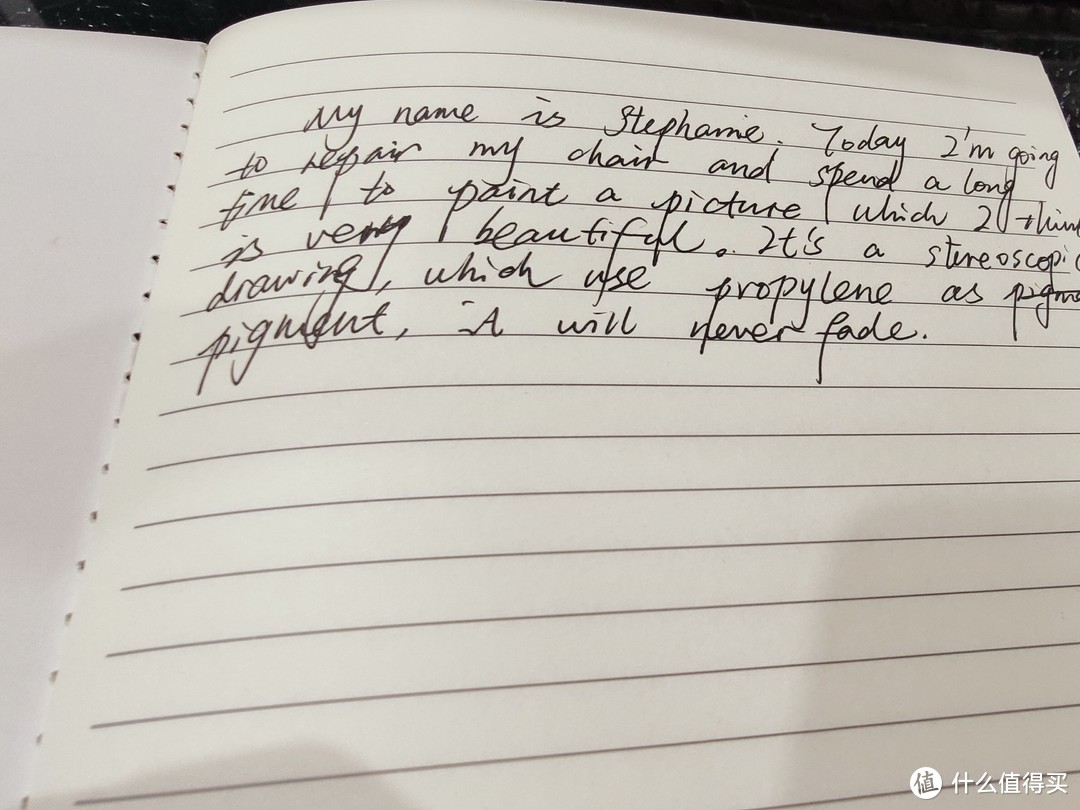 My name is Stephanie. Today I'm going
to repair my chair and spend a long
time to paint a picture which I think
is very beautiful. It's a stereoscopic
drawing, which use propylene as pigme
pigment, it will never fade.
值 什么值得买